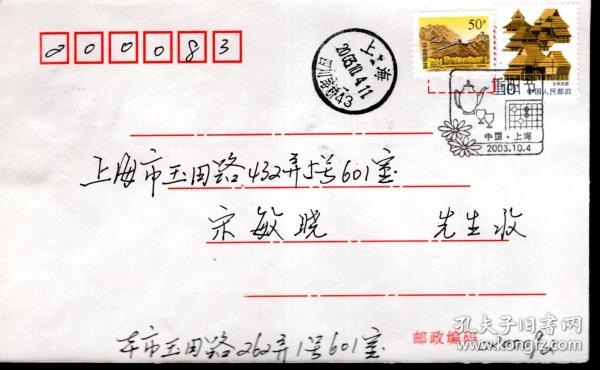 200083
上海
2003.10.4.11
50分
中国人民邮政
10
重阳节
中国·上海
2003.10.4
上海市玉田路432弄5号601室
宋敏晓 先生收
本市玉田路262弄1号601室
邮政编码
孔夫子旧书网